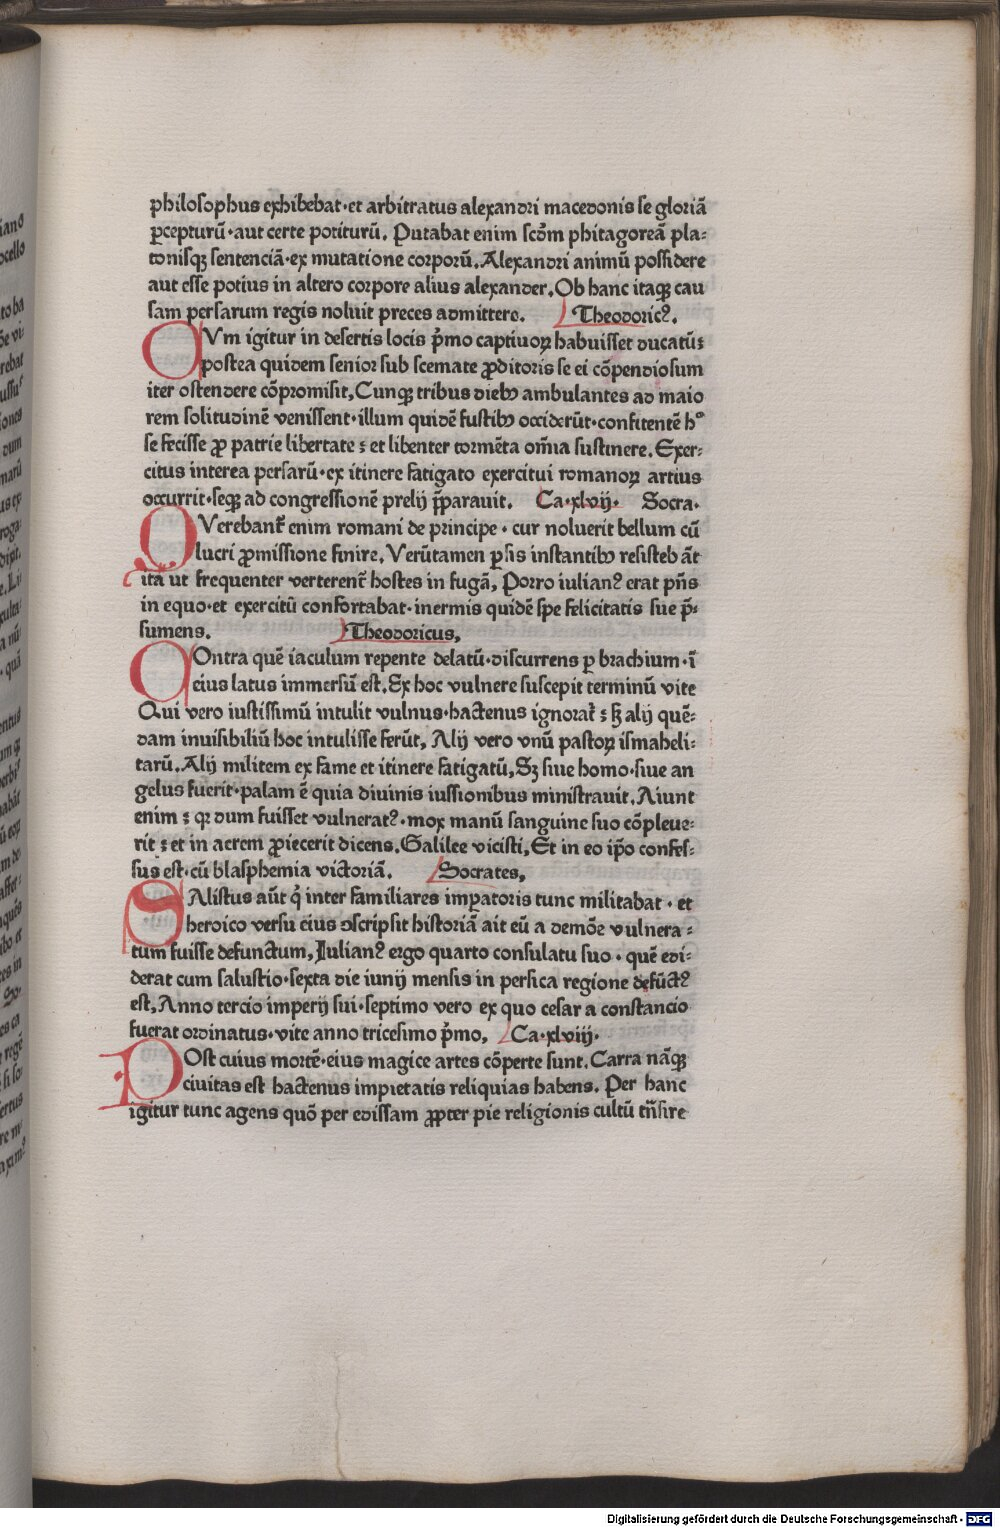 philosophus exhibebat·et arbitratus alexandri macedonis se gloriā
ꝑcepturū·aut certe potiturū. Putabat enim scd̄m phitagoreā pla⸗
tonisqꝫ sentenciā·ex mutatione corporū. Alexandri animū possidere
aut esse potius in altero corpore alius alexander. Ob hanc itaqꝫ cau
sam persarum regis noluit preces admittere. Theodoricꝰ.
CVm igitur in desertis locis pͥmo captiuoꝝ habuisset ducatū:
postea quidem senior sub scemate ꝓditoris se ei cōpendiosum
iter ostendere cōpromisit. Cunqꝫ tribus diebꝫ ambulantes ad maio
rem solitudinē venissent·illum quidē fustibꝫ occiderūt·confitentē hͦ
se fecisse ꝓ patrie libertate : et libenter tormēta om̄ia sustinere. Exer⸗
citus interea persarū·ex itinere fatigato exercitui romanoꝝ artius
occurrit·seqꝫ ad congressionē prelij p̄parauit. Ca·xlvij. Socra.
QVerebant᷑ enim romani de principe · cur noluerit bellum cū
lucri ꝓmissione finire. Verūtamen ꝑsis instantibꝫ resisteb āt
ita ut frequenter verterent᷑ hostes in fugā, Porro iulianꝰ erat pn̄s
in equo·et exercitū confortabat·inermis quidē spe felicitatis sue p̄⸗
sumens. Theodoricus.
COntra quē iaculum repente delatū·discurrens ꝑ brachium·ī
eius latus immersū est. Ex hoc vulnere suscepit terminū vite
Qui vero iustissimū intulit vulnus·hactenus ignorat᷑ : sꝫ alij quē⸗
dam inuisibiliū hoc intulisse ferūt, Alij vero vnū pastoꝝ ismaheli⸗
tarū. Alij militem ex fame et itinere fatigatū, Sꝫ siue homo·siue an
gelus fuerit·palam ē quia diuinis iussionibus ministrauit. Aiunt
enim : qꝛ dum fuisset vulneratꝰ·mox manū sanguine suo cōpleue⸗
rit : et in aerem ꝓiecerit dicens. Galilee vicisti, Et in eo ip̄o confes⸗
sus est·cū blasphemia victoriā. Socrates.
SAlistus aūt qͥ inter familiares imꝑatoris tunc militabat · et
heroico versu eius ↄscripsit historiā ait eū a demōe vulnera⸗
tum fuisse defunctum, Iulianꝰ ergo quarto consulatu suo · quē edi⸗
derat cum salustio·sexta die iunij mensis in persica regione defūctꝰ
est, Anno tercio imperij sui·septimo vero ex quo cesar a constancio
fuerat ordinatus·vite anno tricesimo pͥmo, Ca·xlviij·
POst cuius mortē·eius magice artes cōperte sunt. Carra nāqꝫ
ciuitas est hactenus impietatis reliquias habens. Per hanc
igitur tunc agens quō per edissam ꝓpter pie religionis cultū tn̄sire
Digitalisierung gefördert durch die Deutsche Forschungsgemeinschaft - DFG